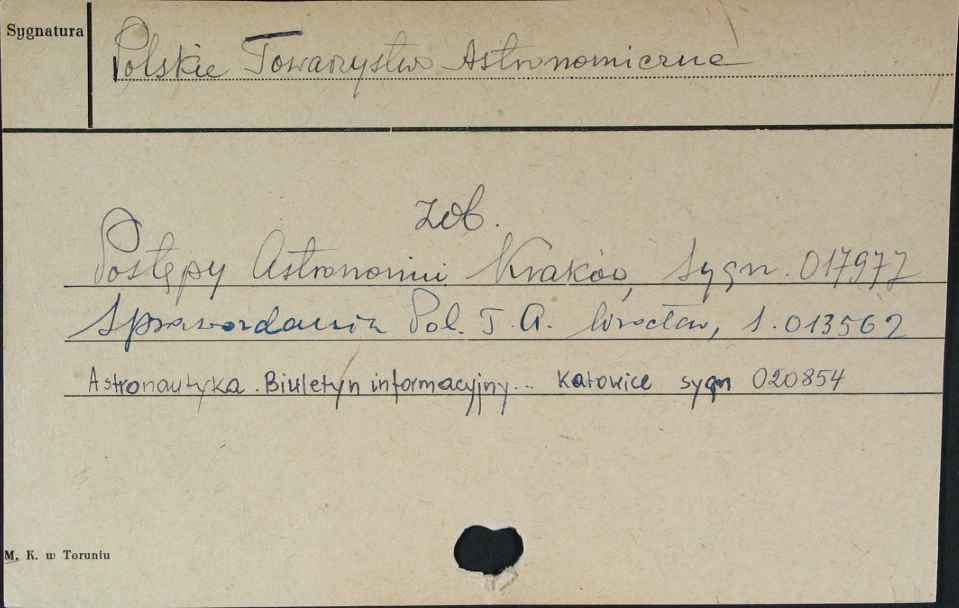 Sygnatura
Polskie Towarzystwo Astronomiczne
zob.
Postępy Astronomii Kraków, sygn. 017977
Sprawozdania Pol. T. A. Wrocław, s. 013562
Astronautyka. Biuletyn informacyjny... Katowice sygn 020854
M. K. w Toruniu